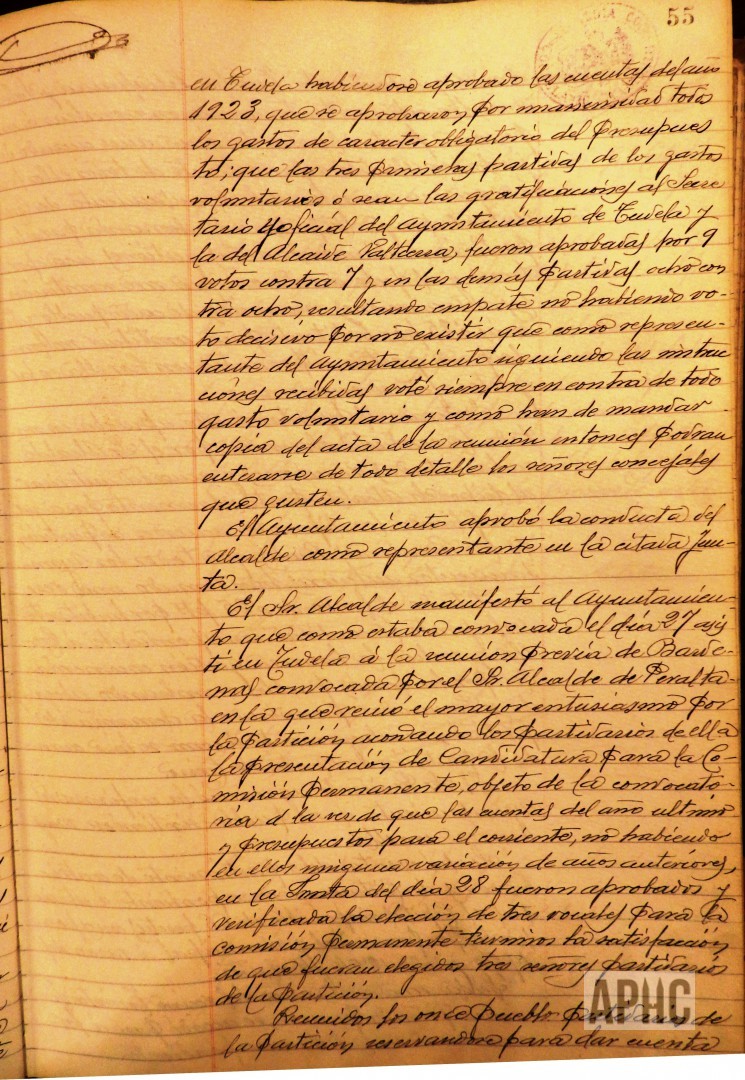 55
en Tudela habiendose aprobado las cuentas del año
1923, que se aprobaron por unanimidad todos
los gastos de caracter obligatorio del Presupues
to; que las tres primeras partidas de los gastos
voluntarios ó sean las gratificaciones al Secre
tario y oficial del Ayuntamiento de Tudela y
la del Alcaide Valtierra, fueron aprobadas por 9
votos contra 7 y en las demás partidas ocho con
tra ocho, resultando empate no habiendo vo-
to decisivo por no existir que como represen-
tante del Ayuntamiento siguiendo las instruc
ciones recibidas voté siempre en contra de todo
gasto voluntario y como han de mandar
copia del acta de la reunión entonces podran
enterarse de todo detalle los señores concejales
que gusten.
El Ayuntamiento aprobó la conducta del
Alcalde como representante en la citada Jun-
ta.
El Sr. Alcalde manifestó al Ayuntamien-
to que como estaba convocada el dia 27 asis
tí en Tudela á la reunion previa de Barde-
nas convocada por el Sr. Alcalde de Peralta-
en la que reinó el mayor entusiasmo por
la partición acordando los partidarios de ella
la presentación de Candidatura para la Co-
misión permanente, objeto de la convocato-
ria á la vez de que las cuentas del año ultimo
y presupuestos para el corriente, no habiendo
en ellos ninguna variación de años anteriores,
en la Junta del dia 28 fueron aprobados y
verificada la elección de tres vocales para la
comisión permanente tuvimos la satisfacción
de que fueran elegidos tres señores partidarios
de la partición.
Reunidos los once pueblos partidarios de
la partición reservandose para dar cuenta
APHC